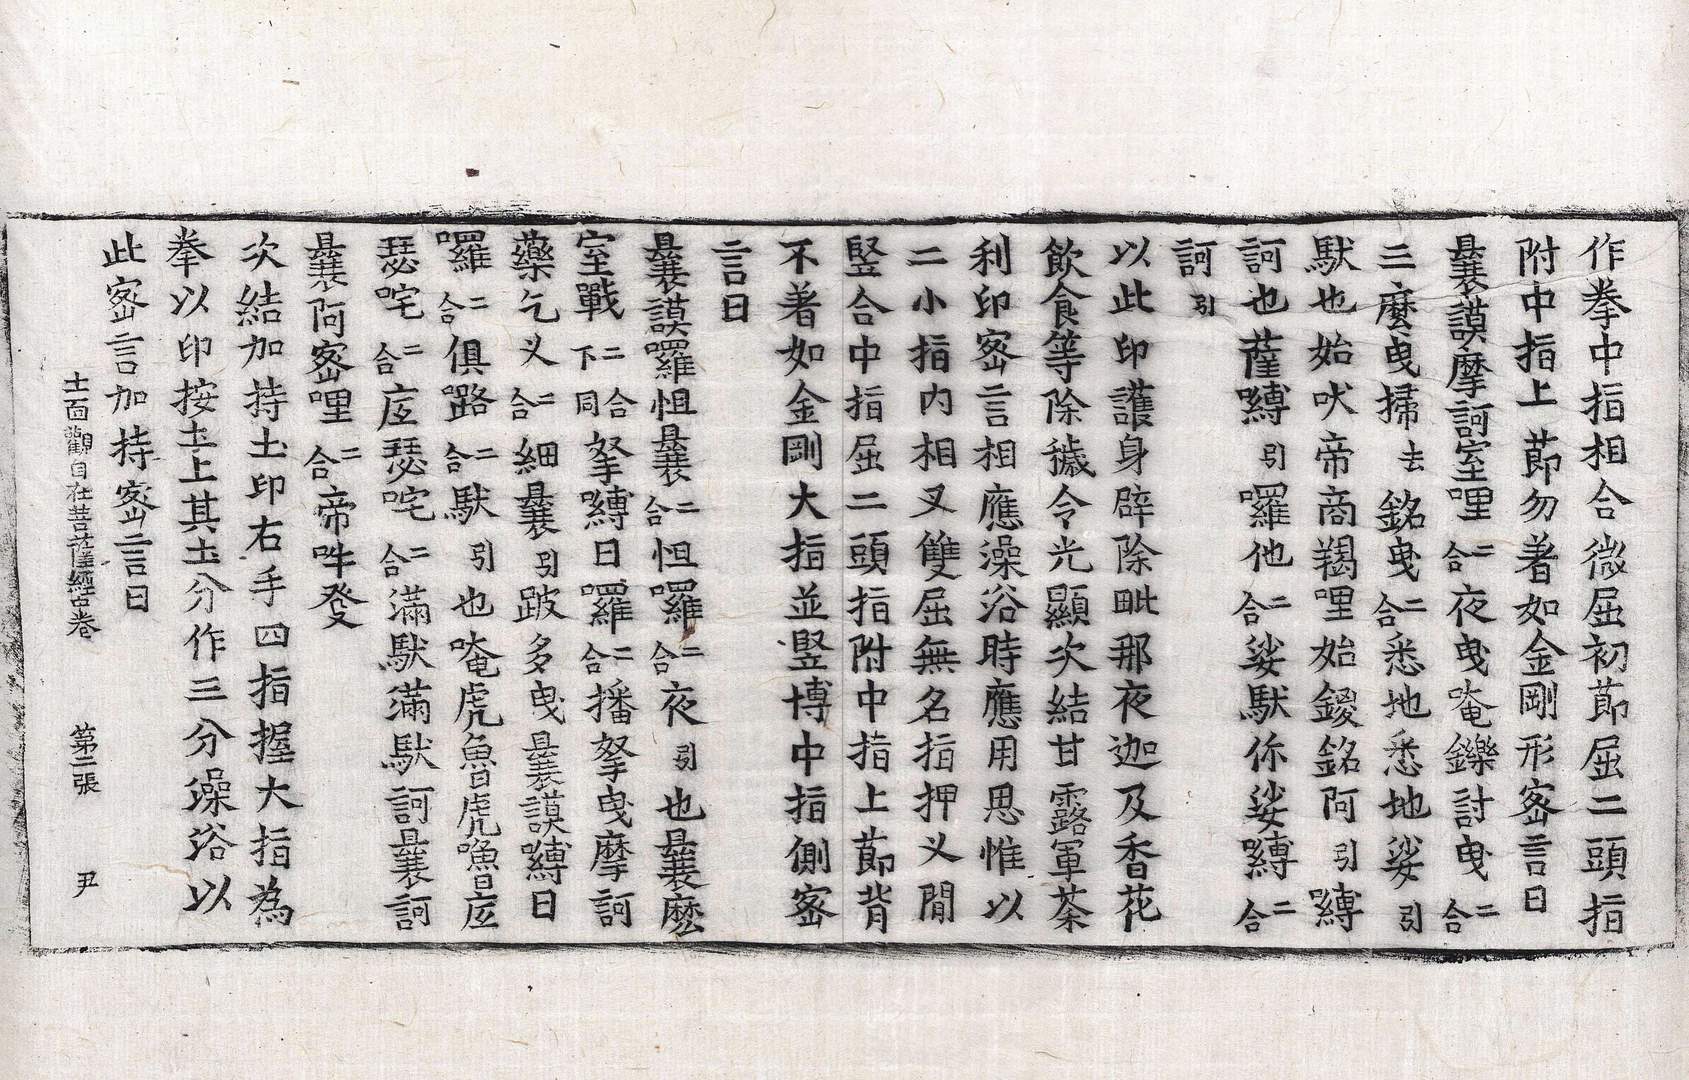 作拳中指相合微屈初節屈二頭指
附中指上節勿著如金剛形密言曰
曩謨摩訶室哩二合夜曳唵鑠討曳二合
三麼曳掃去銘曳二合悉地悉地娑引
馱也始吠帝商羯哩始鑁銘阿引嚩
訶也薩嚩引囉他二合娑馱你娑嚩二合
訶引
以此印護身辟除毗那夜迦及香花
飲食等除穢令光顯次結甘露軍茶
利印密言相應澡浴時應用思惟以
二小指內相叉雙屈無名指押叉間
竪合中指屈二頭指附中指上節背
不著如金剛大指並竪博中指側密
言曰
曩謨囉怛曩二合怛囉二合夜引也曩麼
室戰二合下同拏嚩日囉二合播拏曳摩訶
藥乞叉二合細曩引跛多曳曩謨嚩日
囉二合俱嚕二合馱引也唵虎魯虎嚕底
瑟咤二合底瑟咤二合滿馱滿馱訶曩訶
曩阿密哩二合帝吽發
次結加持土印右手四指握大指為
拳以印按土上其土分作三分澡浴以
此密言加持密言曰
十一面觀自在菩薩經上卷 第二張 尹